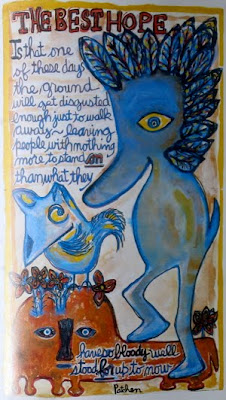 THE BEST HOPE
Is that one
of these days
the ground
will get disgusted
enough just to walk
away ~ leaving
people with nothing
more to stand on
than what they
have so bloody well
stood for up to now
Patchen